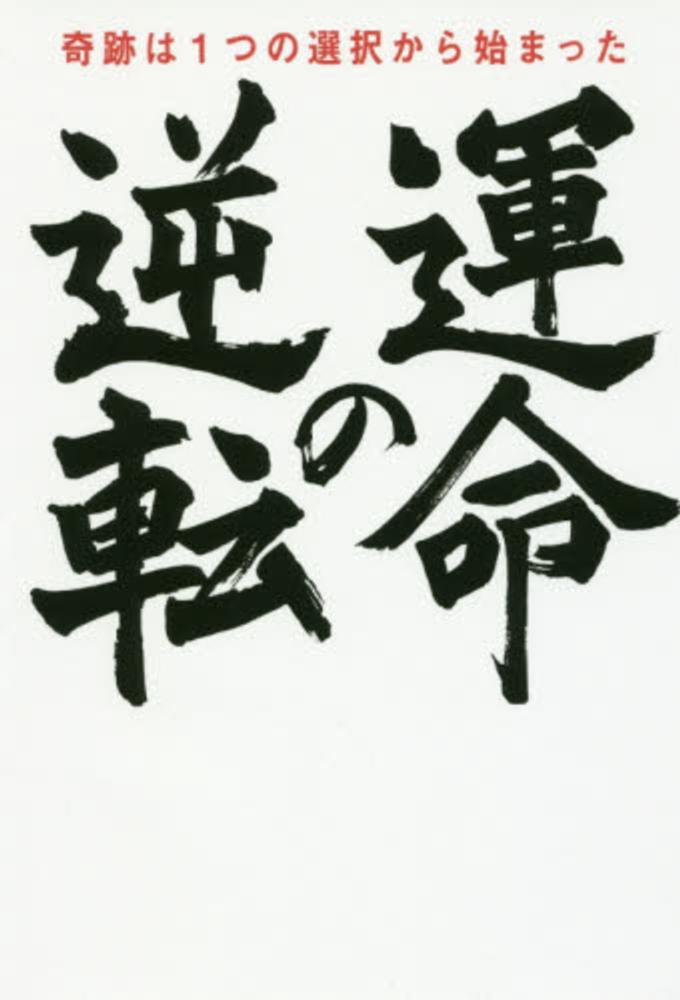 奇跡は1つの選択から始まった
運命の
逆転